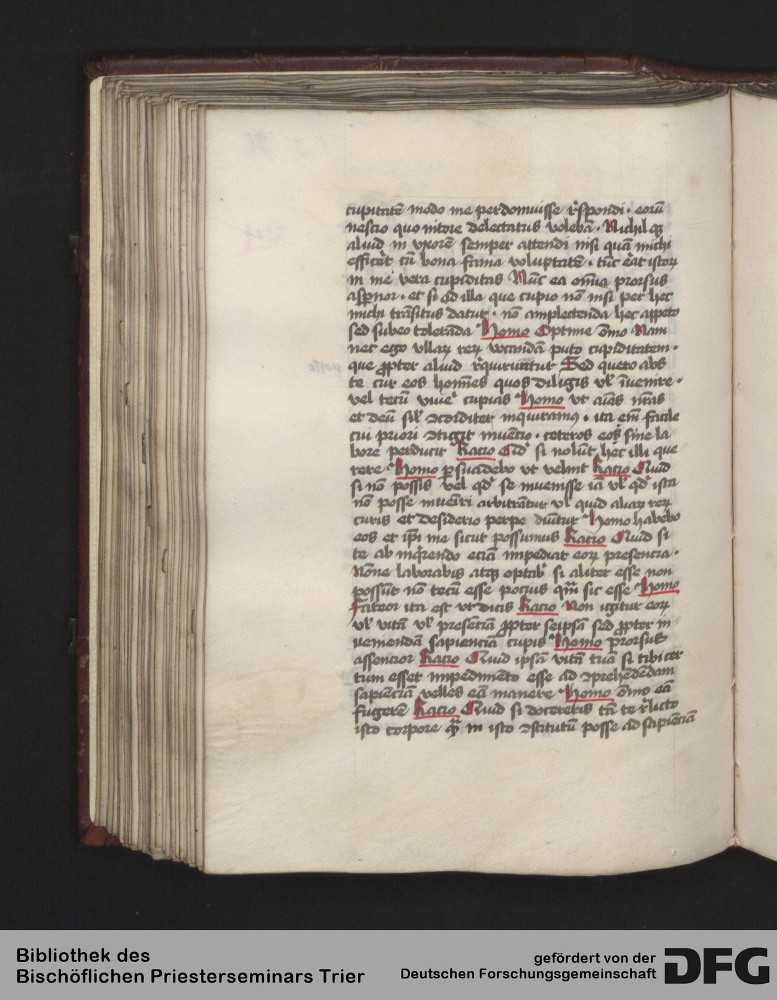 cupitatē modo me perdomuisse r̄spondi · eorū
nescio quo nitore delectatus volebā · Nichil
aliud in vxorē semper attendi nisi quā michi
efficer̄t cū bona fama voluptatē · tūc erāt istorꝝ
in me vera cupiditas Nūc ea om̄ia prorsus
aspnor · et si ad illa que cupio nō nisi per hec
michi trāsitus datur · nō amplectenda hec appeto
sed subeo tolerāda Homo Optime Nam
nec ego vllaꝝ reꝝ vocandā puto cupiditatem ·
que ꝓpter aliud r̄quirūtur Sed quero abs
te cur eos homīes quos diligis vl̄
vel tecū viue᷒ cupias Homo vt aīas nr̄as
et deū sil᷒ ꝯcorditer inquiramꝰ · ita em̄ facile
cui priori ꝯtigit inuētio · ceteros eoꝰ sine la
bore perducit Racio Qͥd si nolūt hec illi que
rere Homo ꝑsuadebo vt velint Racio Quid
si nō possis vel qd᷒ se inuenisse iā vl᷒ qd᷒ ista
nō posse inueīri arbitrātur vl᷒ quid aliaꝝ reꝝ
curis et desiderio Homo habebo
eos et ip̄i me sicut possumus Racio Quid si
te ab inq̄rendo eciā impediat eoꝝ presencia ·
Nōne laborabis atqꝫ optab᷒ si aliter esse non
possūt nō tecū esse pocius qm̄ sic esse Homo
Fateor ita est vt dicis Racio Non igitur eoꝝ
vl᷒ vitā vl᷒ presēciā ꝓpter seipsā sed ꝓpter in
ueniendā sapienciā cupis Homo Prorsus
assencior Racio Quid ipsā vitā tuā si tibi cer
tum esset impedimēto esse ad ꝯprehēdēdam
sapiēciā velles eā manere Homo eā
fugerē Racio Quid si docereris tā te r̄licto
isto corpore q̄ in isto ꝯstitutū posse ad sapiēciā
Bibliothek des
Bischöflichen Priesterseminars Trier
gefördert von der
Deutschen Forschungsgemeinschaft
DFG